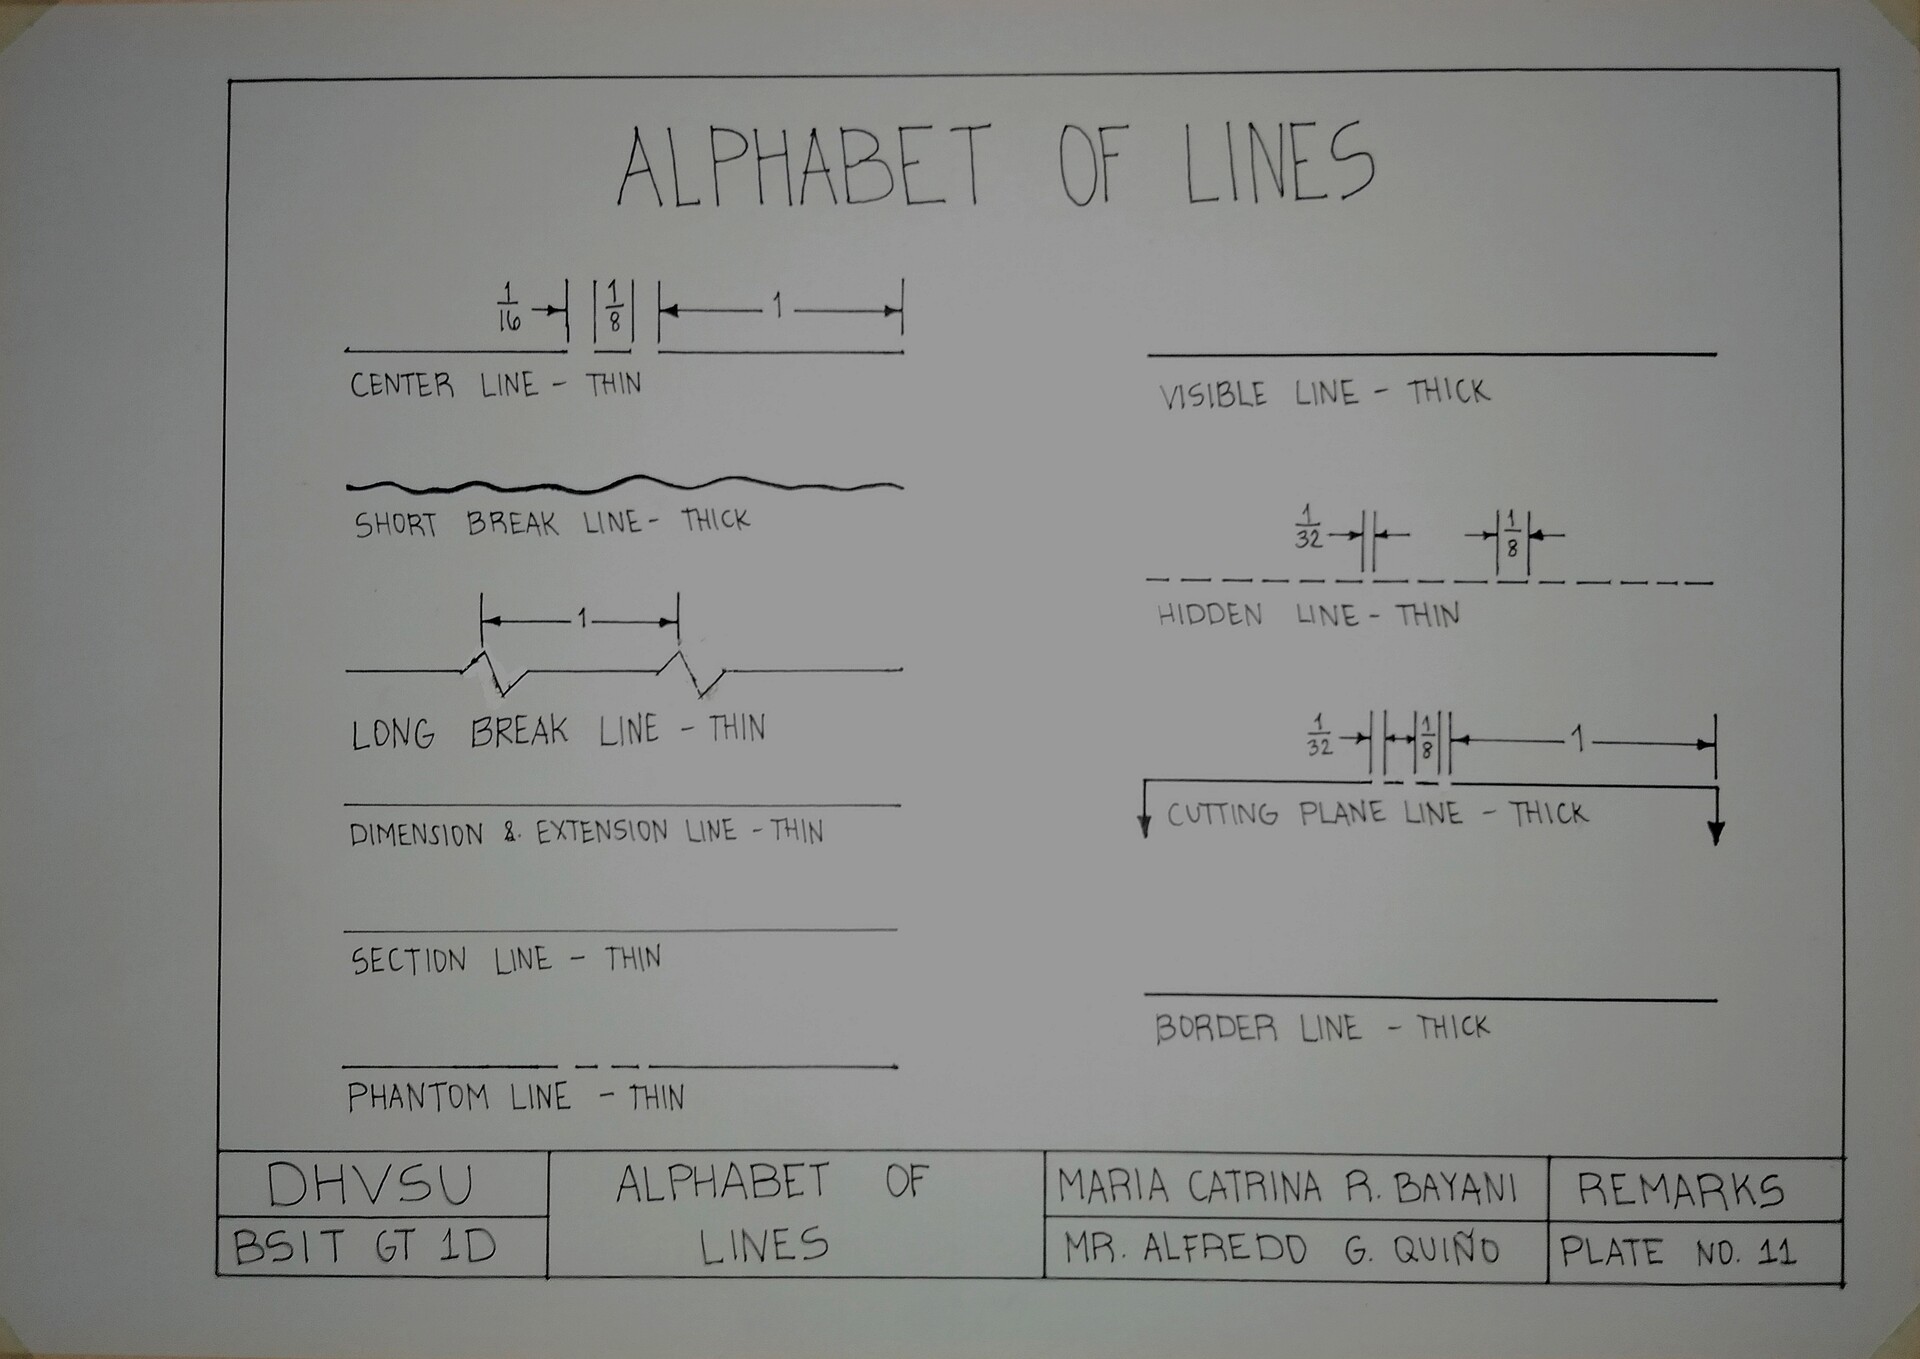 ALPHABET OF LINES
1/16 1/8 1
CENTER LINE - THIN
SHORT BREAK LINE - THICK
1
LONG BREAK LINE - THIN
DIMENSION & EXTENSION LINE - THIN
SECTION LINE - THIN
PHANTOM LINE - THIN
VISIBLE LINE - THICK
1/32 1/8
HIDDEN LINE - THIN
1/32 1/8 1
CUTTING PLANE LINE - THICK
BORDER LINE - THICK
DHVSU
BSIT GT 1D
ALPHABET OF
LINES
MARIA CATRINA R. BAYANI
MR. ALFREDO G. QUIÑO
REMARKS
PLATE NO. 11